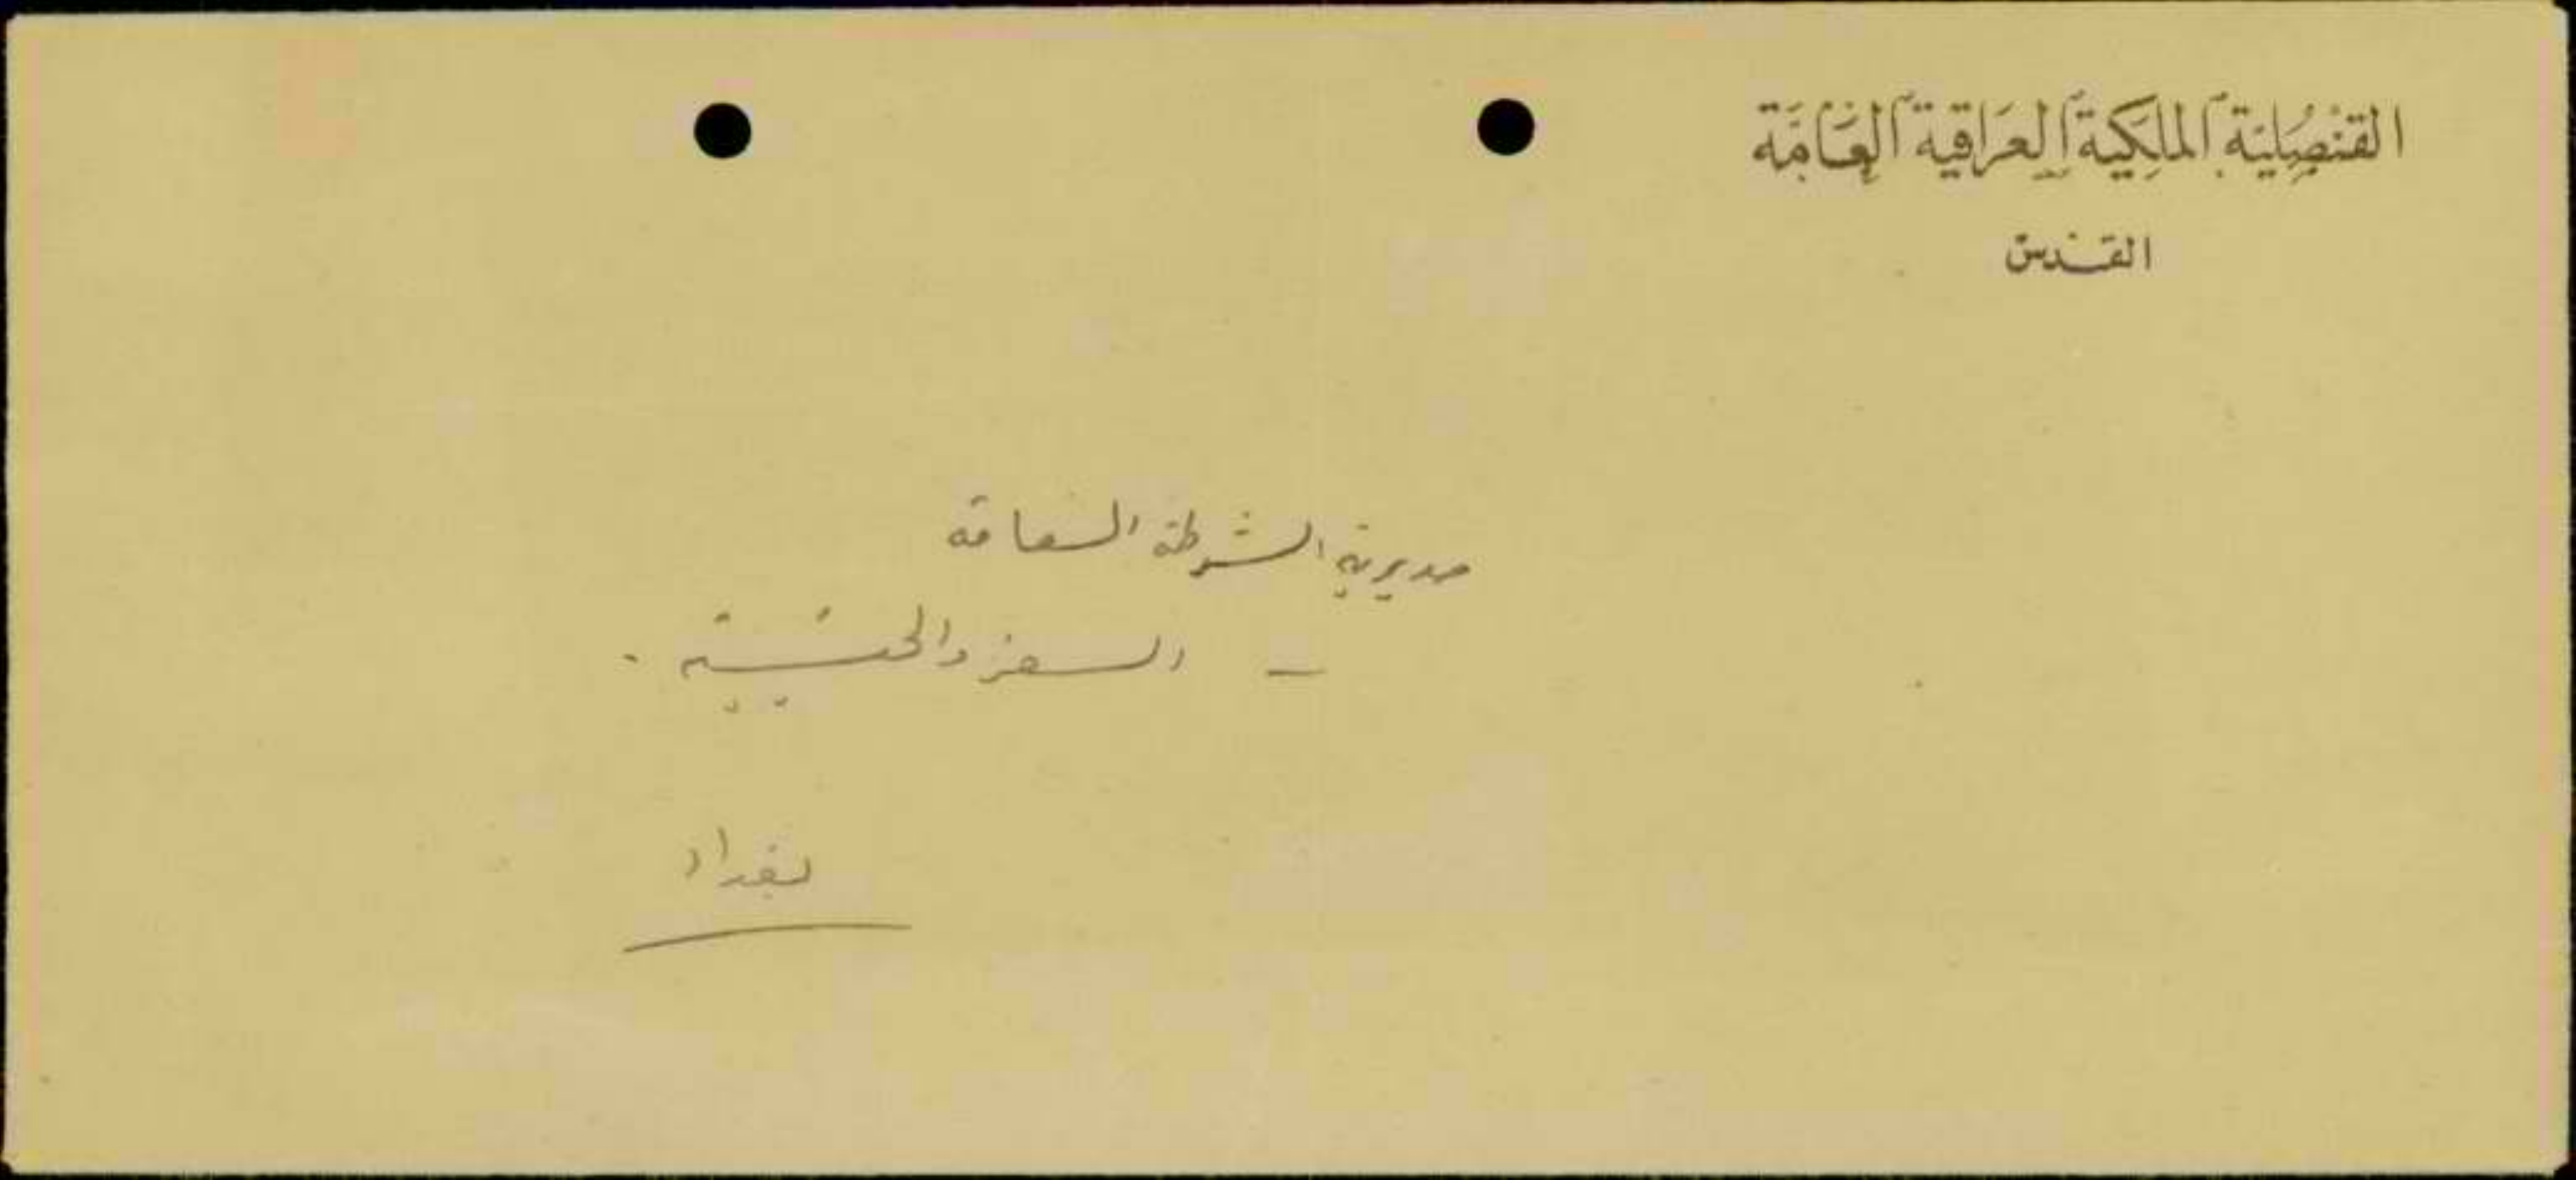 القنصلية الملكية العراقية العامة
القدس
مديرية الشرطة العامة
- السفر والجنسية .
بغداد